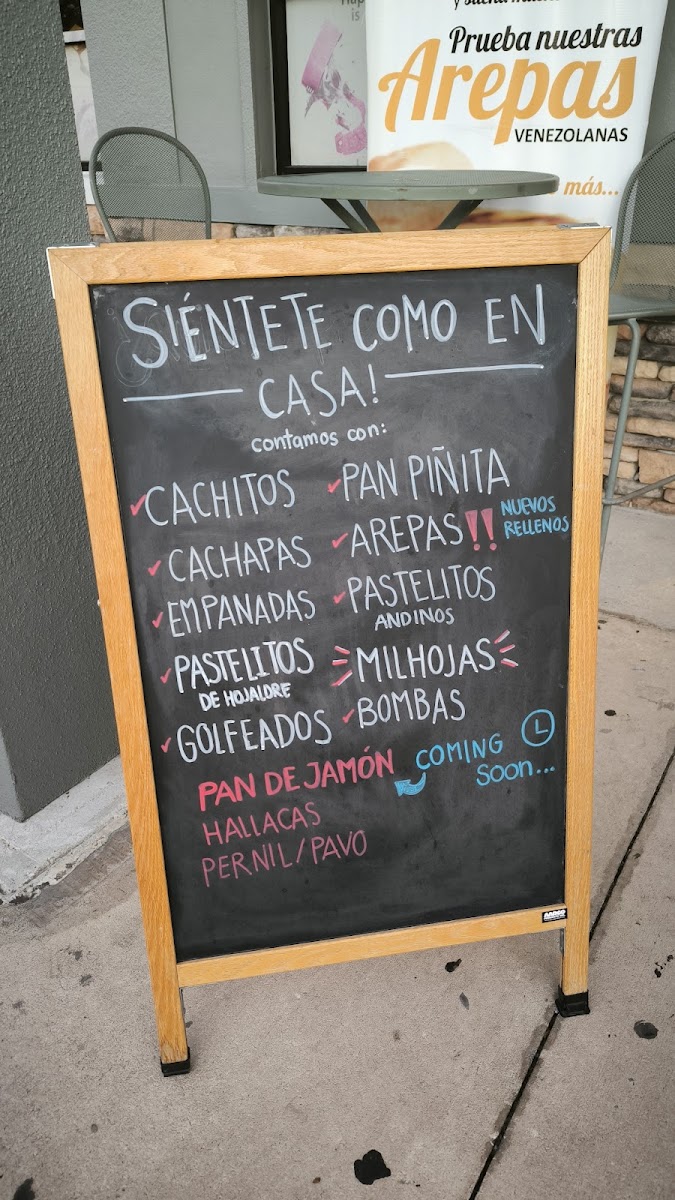 y
Prueba nuestras
Arepas
VENEZOLANAS
más...
SIÉNTETE COMO EN
CASA!
contamos con:
CACHITOS
PAN PIÑITA
CACHAPAS
AREPAS!!
NUEVOS
RELLENOS
EMPANADAS
PASTELITOS
ANDINOS
PASTELITOS
DE HOJALDRE
MILHOJAS
GOLFEADOS
BOMBAS
PAN DE JAMÓN
COMING
SOON...
HALLACAS
PERNIL/PAVO